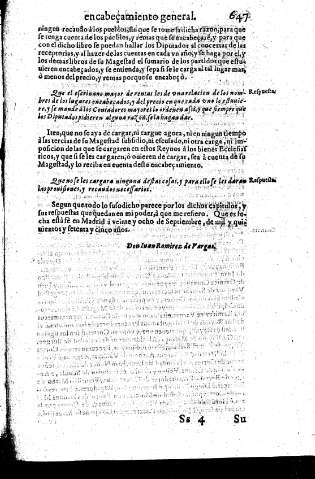 encabeçamiento general. 647
ningun recaudo a los pueblos, sin que se tome la dicha razon, para que
se tenga cuenta de los passos, y demas que se encabeçare, y para que
con el dicho libro se puedan hallar los Diputados al
receptorias, y al hazer de las cuentas en cada vn año, y se haga por el, y
los demas libros de su Magestad el sumario de los partidos que estu-
uieren encabeçados, y se entienda, y sepa si se le carga al tal lugar mas,
ò menos del precio, y rentas porque se encabeçò.
Que el escriuano mayor de rentas les dè vna relacion de los nom-
bres de los lugares encabeçados, y del precio en que cada vno lo estuuie-
re, y se mande à los Contadores mayores lo ordenen assi, y que siempre que
los Diputados pidieren alguna razon, se la hagan dar.
Respuesta.
Iten, que no se aya de cargar, ni cargue agora, ni en ningun tiempo
à las tercias de su Magestad subsidio, ni escusado, ni otra carga, ni im-
posicion de las que se cargaren en estos Reynos à los bienes Ecclesias-
ticos, y que si se les cargaren, ò ouieren de cargar, sea à cuenta de su
Magestad, y lo reciba en cuenta deste encabeçamiento.
Que no se les cargara ninguna destas cosas, y para ello se les daràn
las prouisiones, y recaudos necessarios.
Respuesta.
Segun que todo lo susodicho parece por los dichos capitulos, y
sus respuestas que quedan en mi poder, à que me refiero. Que es fe-
cha esta fè en Madrid à veinte y ocho de Septiembre, de mil y qui-
nientos y setenta y cinco años.
Don Iuan Ramirez de Vargas.
Ss 4 Su